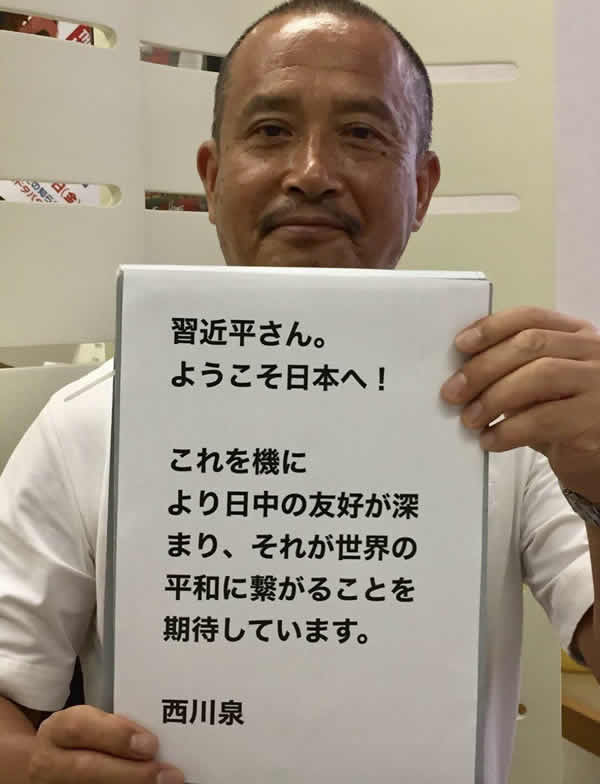 習近平さん。
ようこそ日本へ！
これを機に
より日中の友好が深
まり、それが世界の
平和に繋がることを
期待しています。
西川泉